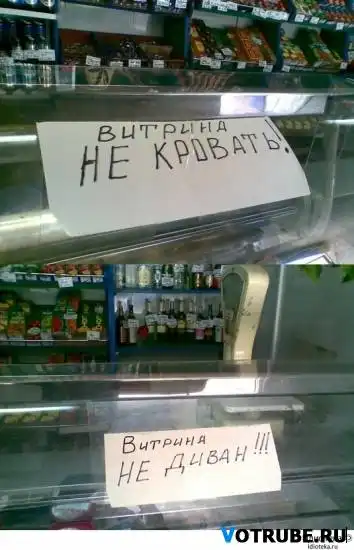 ВИТРИНА
НЕ КРОВАТЬ!
ВИТРИНА
НЕ ДИВАН!!!
VOTRUBE.RU
idioteka.ru